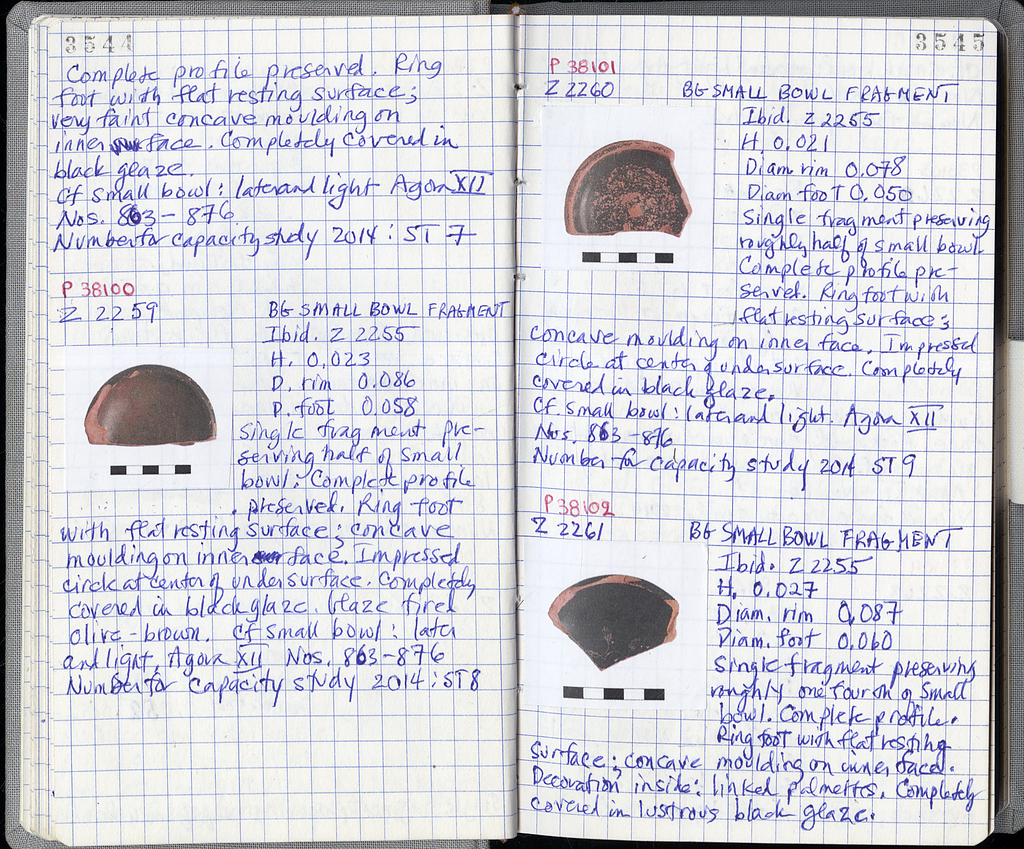 3544
Complete profile preserved. Ring
foot with flat resting surface;
very faint concave moulding on
inner face. Completely covered in
black glaze.
Cf small bowl: later and light Agora XII
Nos. 863-876
Number for capacity study 2014: ST 7
P 38100
Z 2259 BG SMALL BOWL FRAGMENT
Ibid. Z 2255
H. 0.023
D. rim 0.086
D. foot 0.058
Single fragment pre-
serving half of small
bowl. Complete profile
preserved. Ring foot
with flat resting surface; concave
moulding on inner face. Impressed
circle at center of undersurface. Completely
covered in black glaze. Glaze fired
olive-brown. Cf small bowl: later
and light, Agora XII Nos. 863-876
Number for capacity study 2014: ST8
3545
P 38101
Z 2260 BG SMALL BOWL FRAGMENT
Ibid. Z 2255
H. 0.021
Diam rim 0.078
Diam foot 0.050
Single fragment preserving
roughly half of small bowl.
Complete profile pre-
served. Ring foot with
flat resting surface;
concave moulding on inner face. Impressed
circle at center of undersurface. Completely
covered in black glaze.
Cf. small bowl: later and light. Agora XII
Nos. 863-876
Number for capacity study 2014 ST 9
P 38102
Z 2261 BG SMALL BOWL FRAGMENT
Ibid. Z 2255
H. 0.027
Diam. rim 0.087
Diam. foot 0.060
Single fragment preserving
roughly one fourth of small
bowl. Complete profile.
Ring foot with flat resting
surface; concave moulding on inner face.
Decoration inside: linked palmettes. Completely
covered in lustrous black glaze.